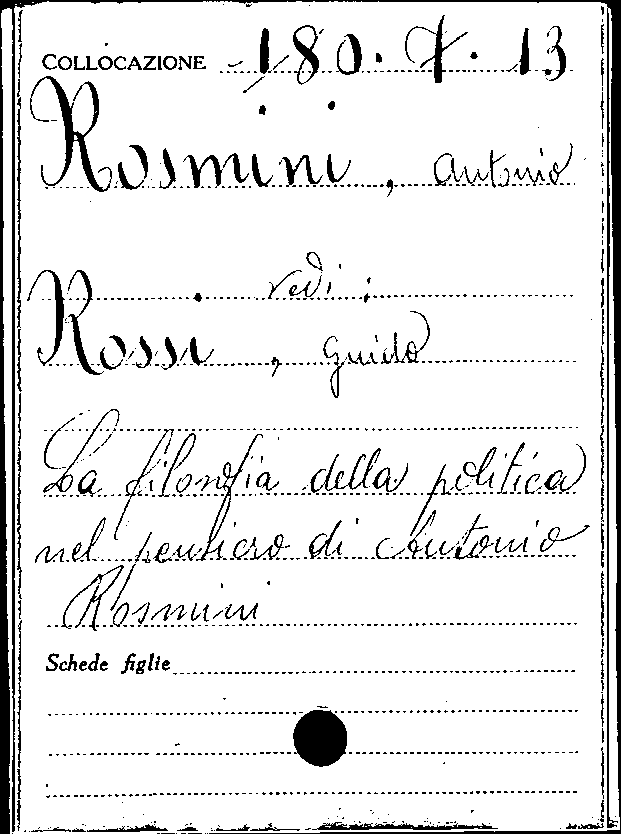 COLLOCAZIONE 180. 7. 13
Rosmini, Antonio
vedi:
Rossi, Guido
La filosofia della politica
nel pensiero di Antonio
Rosmini
Schede figlie